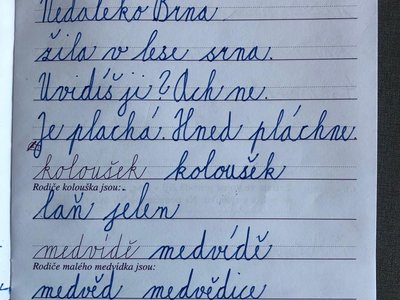 Nedaleko Brna
žila v lese srna.
Uvidíš ji? Ach ne.
Je plachá. Hned pláchne.
koloušek koloušek
Rodiče kolouška jsou:
laň jelen
medvídě medvídě
Rodiče malého medvídka jsou:
medvěd medvědice